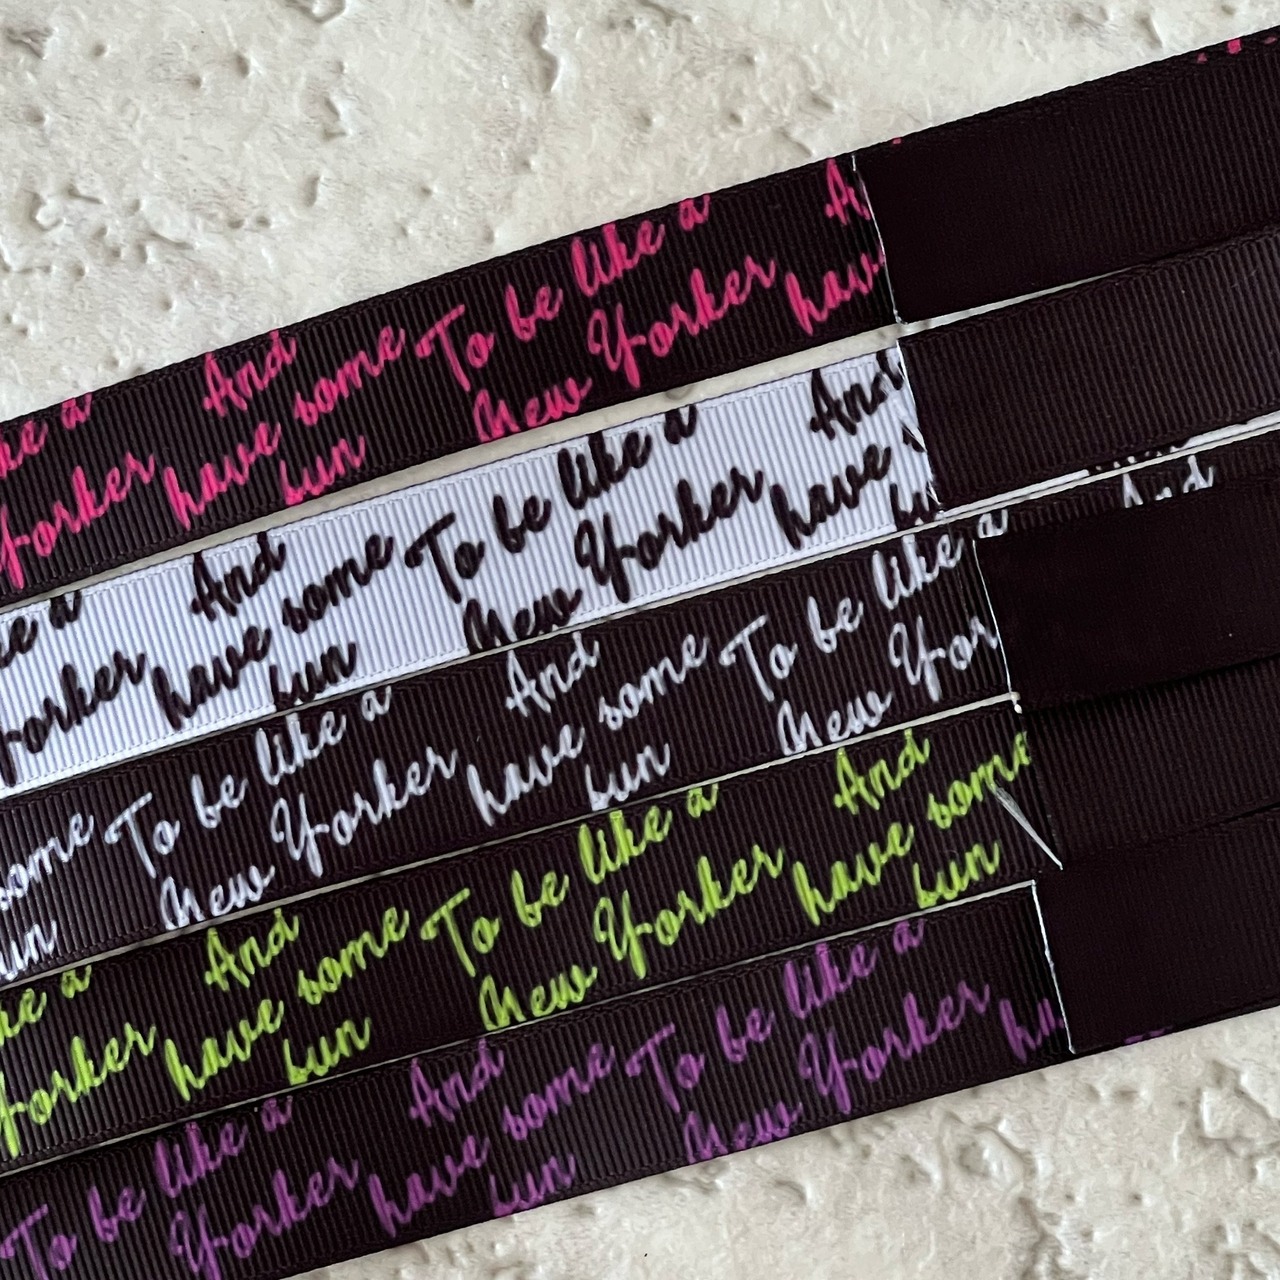 a
Yorker
And
have some
fun
To be like a
New Yorker
have
a
Yorker
And
have some
fun
To be like a
New Yorker
And
have
some
To be like a
New Yorker
And
have some
fun
To be like a
New Yor
And
like a
Yorker
And
have some
fun
To be like a
New Yorker
And
have some
fun
To be like a
Yorker
And
have some
fun
To be like a
New Yorker
ha